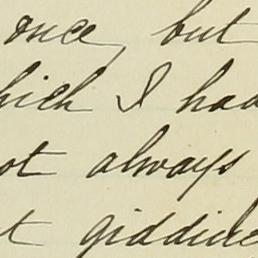 once, but
hich I had
ot always
t giddine